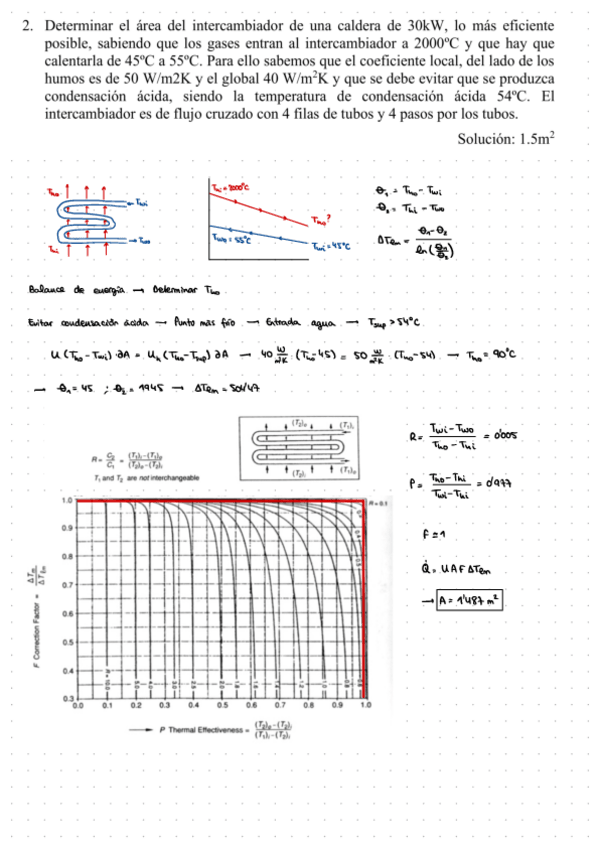 2. Determinar el área del intercambiador de una caldera de 30kW, lo más eficiente
posible, sabiendo que los gases entran al intercambiador a 2000ºC y que hay que
calentarla de 45ºC a 55ºC. Para ello sabemos que el coeficiente local, del lado de los
humos es de 50 W/m2K y el global 40 W/m²K y que se debe evitar que se produzca
condensación ácida, siendo la temperatura de condensación ácida 54ºC. El
intercambiador es de flujo cruzado con 4 filas de tubos y 4 pasos por los tubos.
Solución: 1.5m²
Tho
Twi
Two
Thi
Thi = 2000°C
Tho?
Two = 55°C
Twi = 45°C
θ₁ = Tho - Twi
θ₂ = Thi - Two
ΔTlm = (θ₁ - θ₂) / ln(θ₁/θ₂)
Balance de energía → Determinar Tho
Evitar condensación ácida → Punto más frío → Entrada agua → Tsup > 54°C
U (Tho - Twi) ∂A = Uh (Tho - Tsup) ∂A → 40 W/m²K (Tho - 45) = 50 W/m²K (Tho - 54) → Tho = 90°C
→ θ₁ = 45 ; θ₂ = 1945 → ΔTlm = 504'47
R = C₂/C₁ = (T₁)ᵢ-(T₁)ₒ / (T₂)ₒ-(T₂)ᵢ
T₁ and T₂ are not interchangeable
(T₂)ₒ
(T₁)ᵢ
(T₂)ᵢ
(T₁)ₒ
R = (Twi - Two) / (Tho - Thi) = 0'005
P = (Tho - Thi) / (Twi - Thi) = 0'977
F ≃ 1
Q̇ = U A F ΔTlm
→ A = 1'487 m²
F Correction Factor = ΔTm / ΔTlm
1.0
0.9
0.8
0.7
0.6
0.5
0.4
0.3
R = 0.1
R = 10.0
5.0
4.0
3.0
2.5
2.0
1.8
1.6
1.4
1.2
1.0
0.8
0.0 0.1 0.2 0.3 0.4 0.5 0.6 0.7 0.8 0.9 1.0
→ P Thermal Effectiveness = (T₂)ₒ-(T₂)ᵢ / (T₁)ᵢ-(T₂)ᵢ